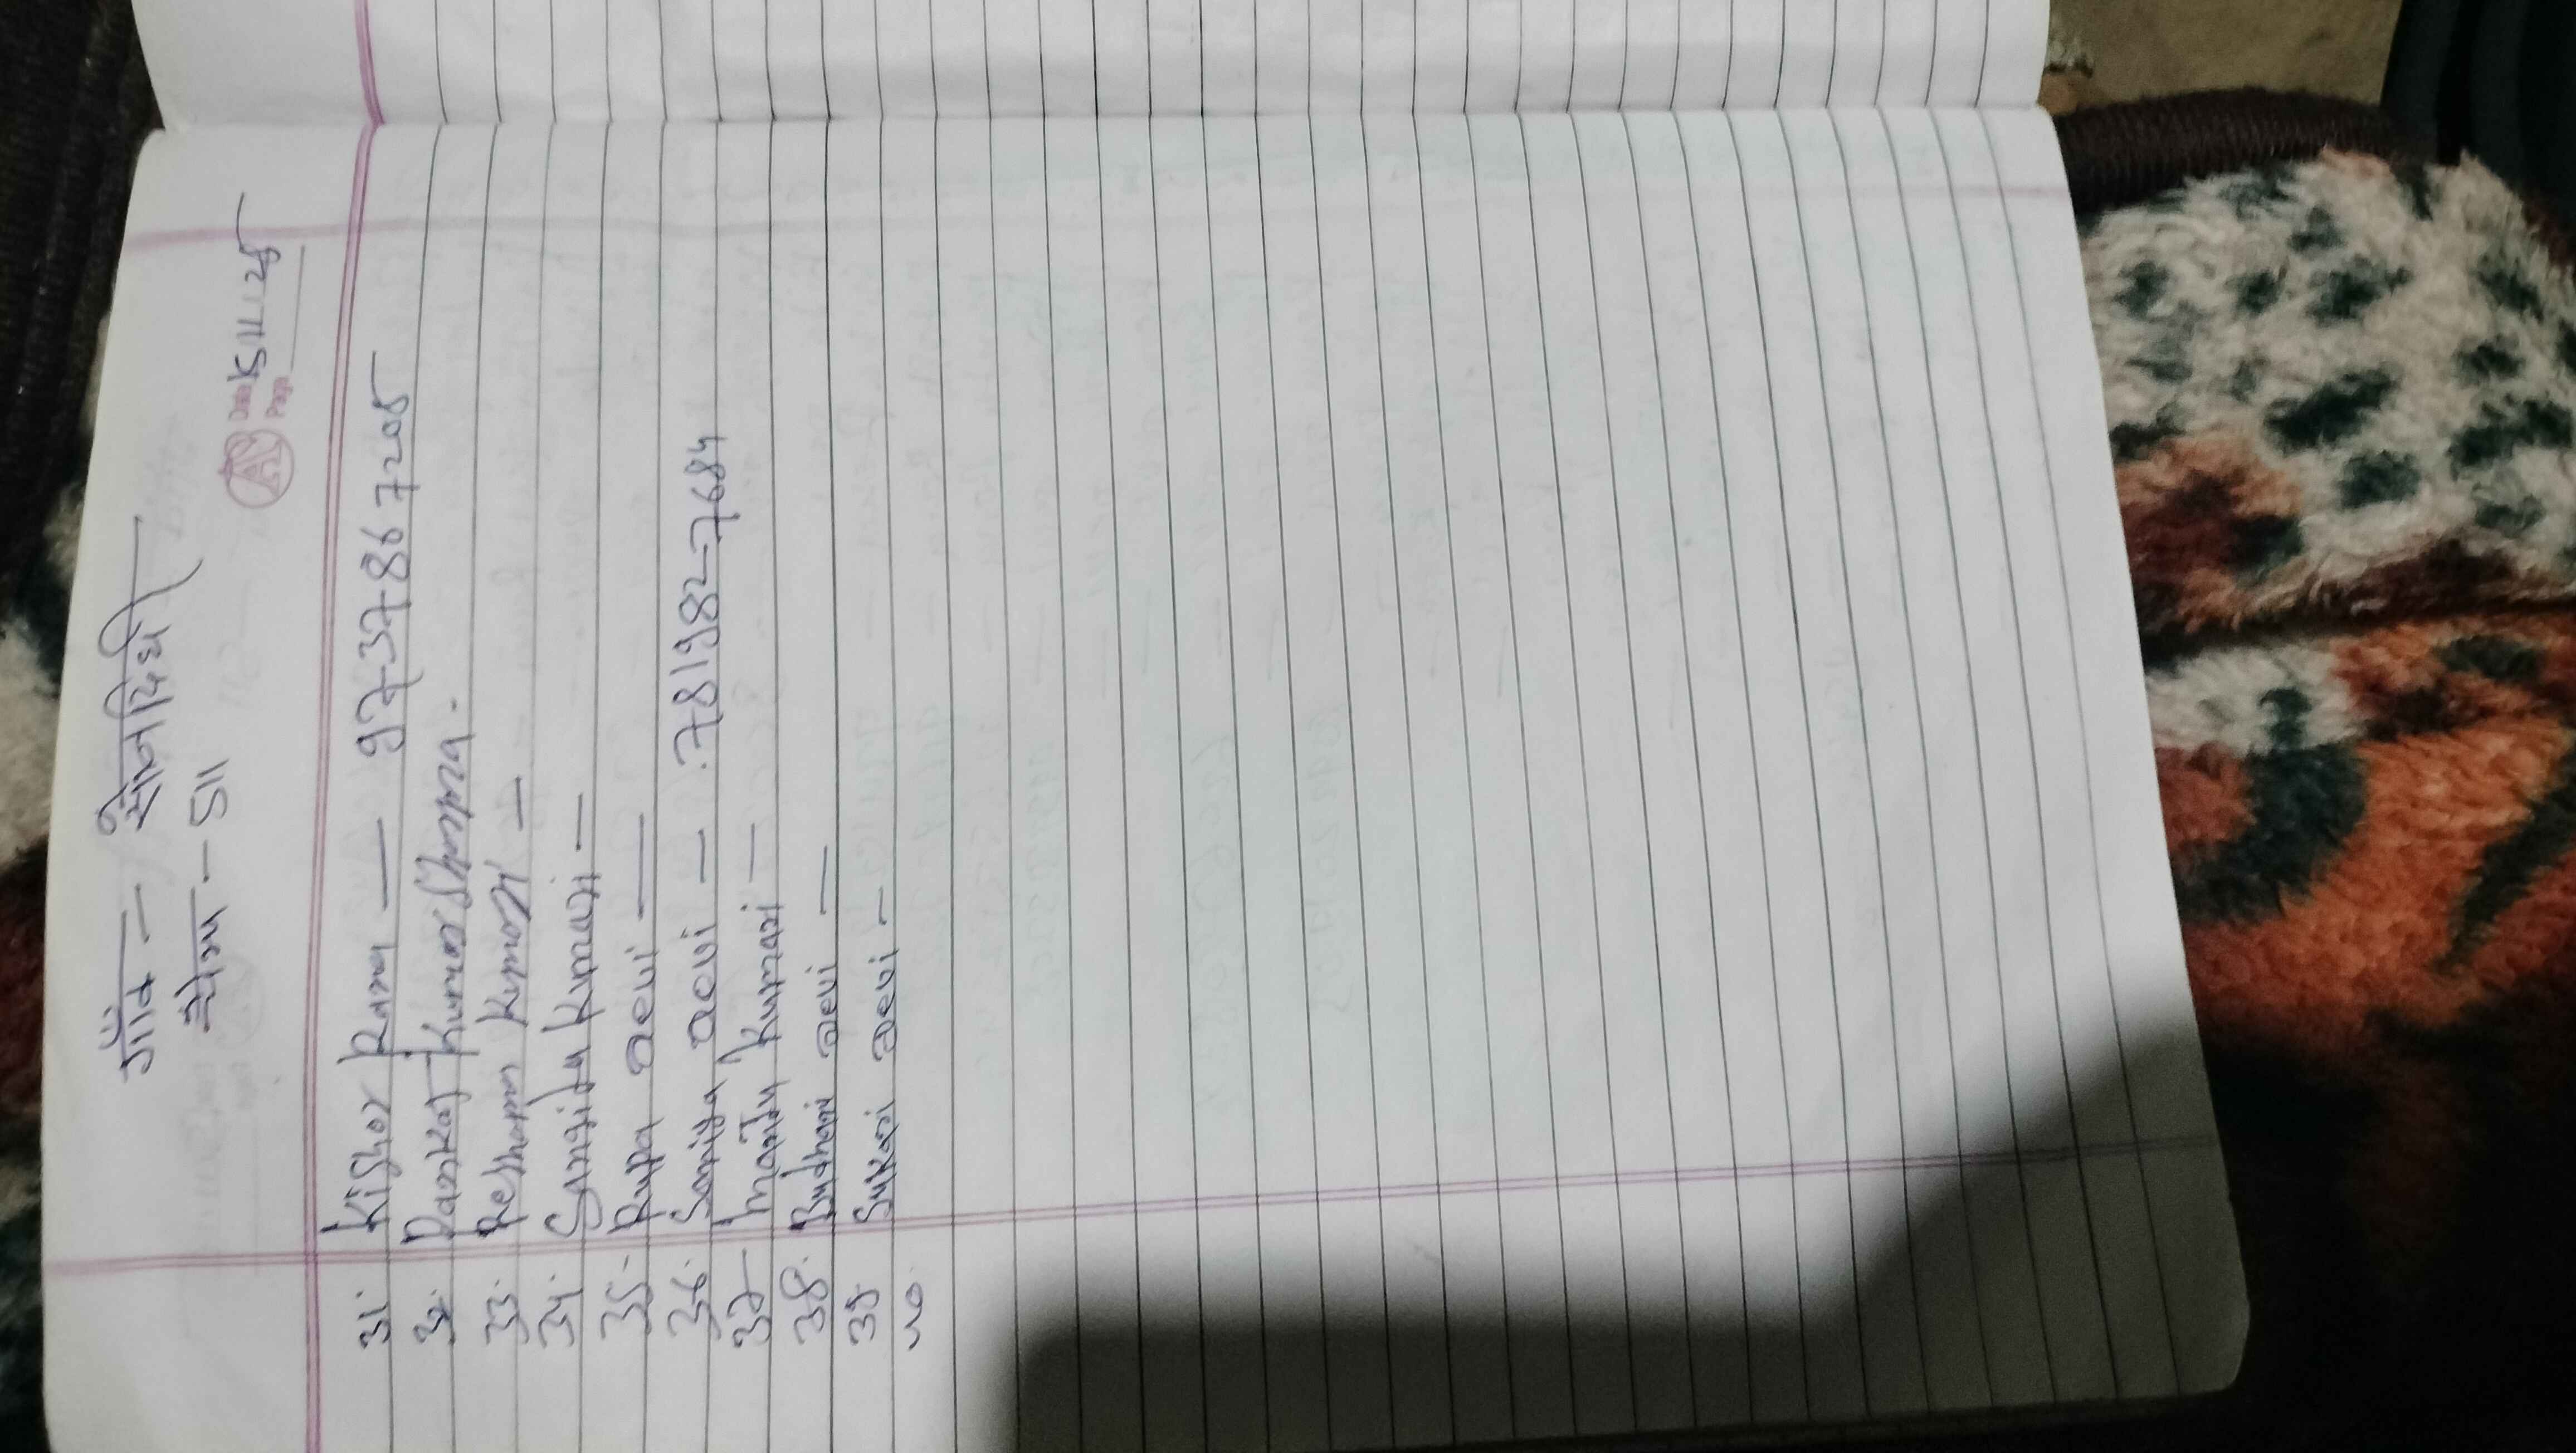 गाँव - सोनदिघी
Date 5।11।25
Page
31. Kishor Rana — 9737867205
32. Pankaj Kumar Sharma -
33. Resham Kumari —
34. Sangita Kumari —
35. Rupa Devi —
36. Sarita Devi — 7819827684
37- Manju Kumari —
38. Budhani Devi —
39 Sukari Devi —
40.